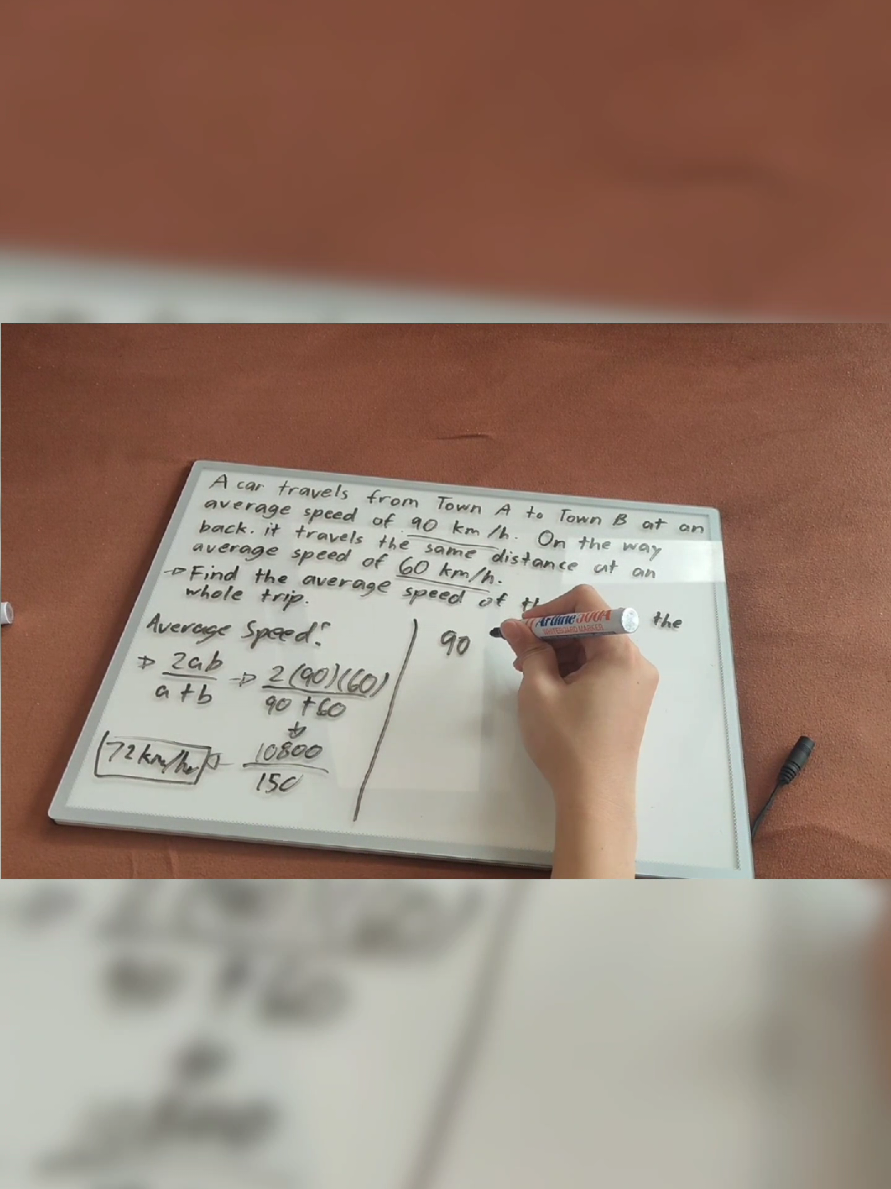 A car travels from Town A to Town B at an
average speed of 90 km/h. On the way
back. it travels the same distance at an
average speed of 60 km/h.
→ Find the average speed of the
whole trip.
Average Speed:
→ 2ab / a + b → 2(90)(60) / 90 + 60
10800 / 150
72 km/hr
90
Artline 500A